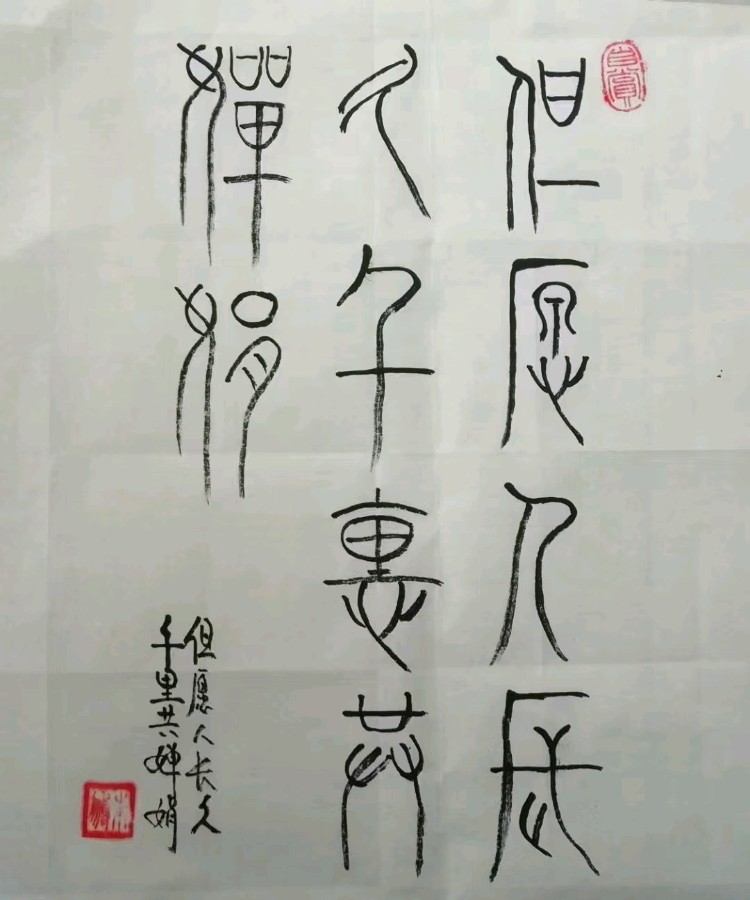 但愿人長
久千裏共
嬋娟
但愿人长久
千里共婵娟